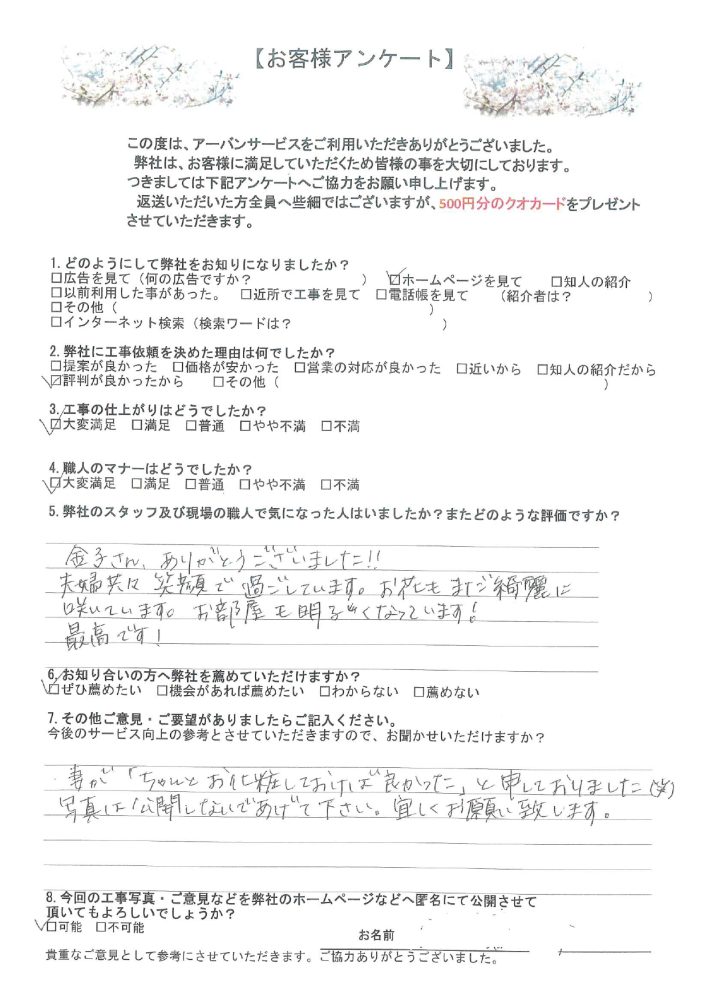 【お客様アンケート】
この度は、アーバンサービスをご利用いただきありがとうございました。
弊社は、お客様に満足していただくため皆様の事を大切にしております。
つきましては下記アンケートへご協力をお願い申し上げます。
返送いただいた方全員へ些細ではございますが、500円分のクオカードをプレゼント
させていただきます。
1.どのようにして弊社をお知りになりましたか?
□広告を見て(何の広告ですか? ) ☑ホームページを見て □知人の紹介
□以前利用した事があった。 □近所で工事を見て □電話帳を見て (紹介者は? )
□その他( )
□インターネット検索(検索ワードは? )
2.弊社に工事依頼を決めた理由は何でしたか?
□提案が良かった □価格が安かった □営業の対応が良かった □近いから □知人の紹介だから
☑評判が良かったから □その他( )
3.工事の仕上がりはどうでしたか?
☑大変満足 □満足 □普通 □やや不満 □不満
4.職人のマナーはどうでしたか?
☑大変満足 □満足 □普通 □やや不満 □不満
5.弊社のスタッフ及び現場の職人で気になった人はいましたか?またどのような評価ですか?
金子さん、ありがとうございました!!
夫婦共に笑顔で過ごしています。お花もまだ綺麗に
咲いています。お部屋も明るくなっています!
最高です!
6.お知り合いの方へ弊社を薦めていただけますか?
☑ぜひ薦めたい □機会があれば薦めたい □わからない □薦めない
7.その他ご意見・ご要望がありましたらご記入ください。
今後のサービス向上の参考とさせていただきますので、お聞かせいただけますか?
・妻が「ちゃんとお化粧しておけば良かった」と申しておりました(笑)
写真は公開しないであげて下さい。宜しくお願い致します。
8.今回の工事写真・ご意見などを弊社のホームページなどへ匿名にて公開させて
頂いてもよろしいでしょうか?
☑可能 □不可能
お名前
貴重なご意見として参考にさせていただきます。ご協力ありがとうございました。